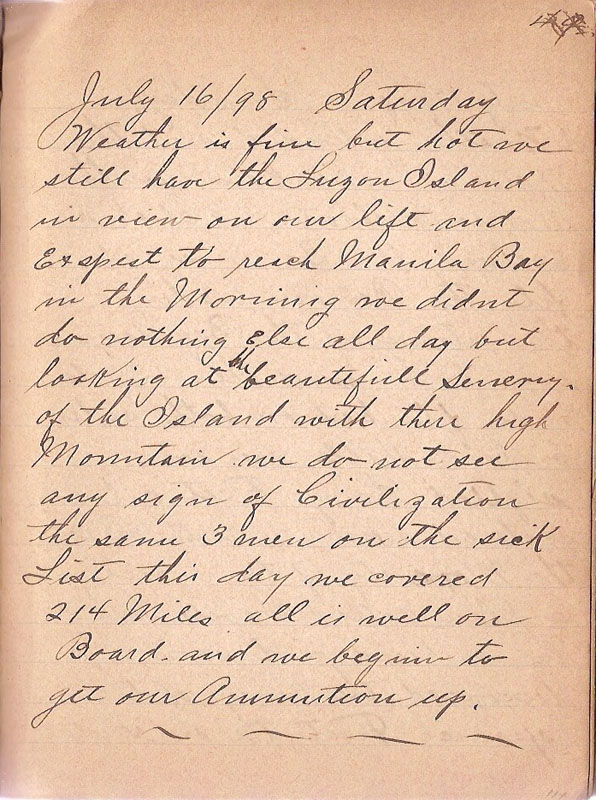 July 16/98 Saturday
Weather is fine but hot we
still have the Luzon Island
in view on our lift and
Expest to reach Manila Bay
in the Morning we didnt
do nothing Else all day but
looking at the beautifull Senery.
of the Island with there high
Mountain we do not see
any sign of Civilization
the same 3 men on the sick
List this day we covered
214 Miles all is well on
Board. and we beginn to
get our Ammution up.